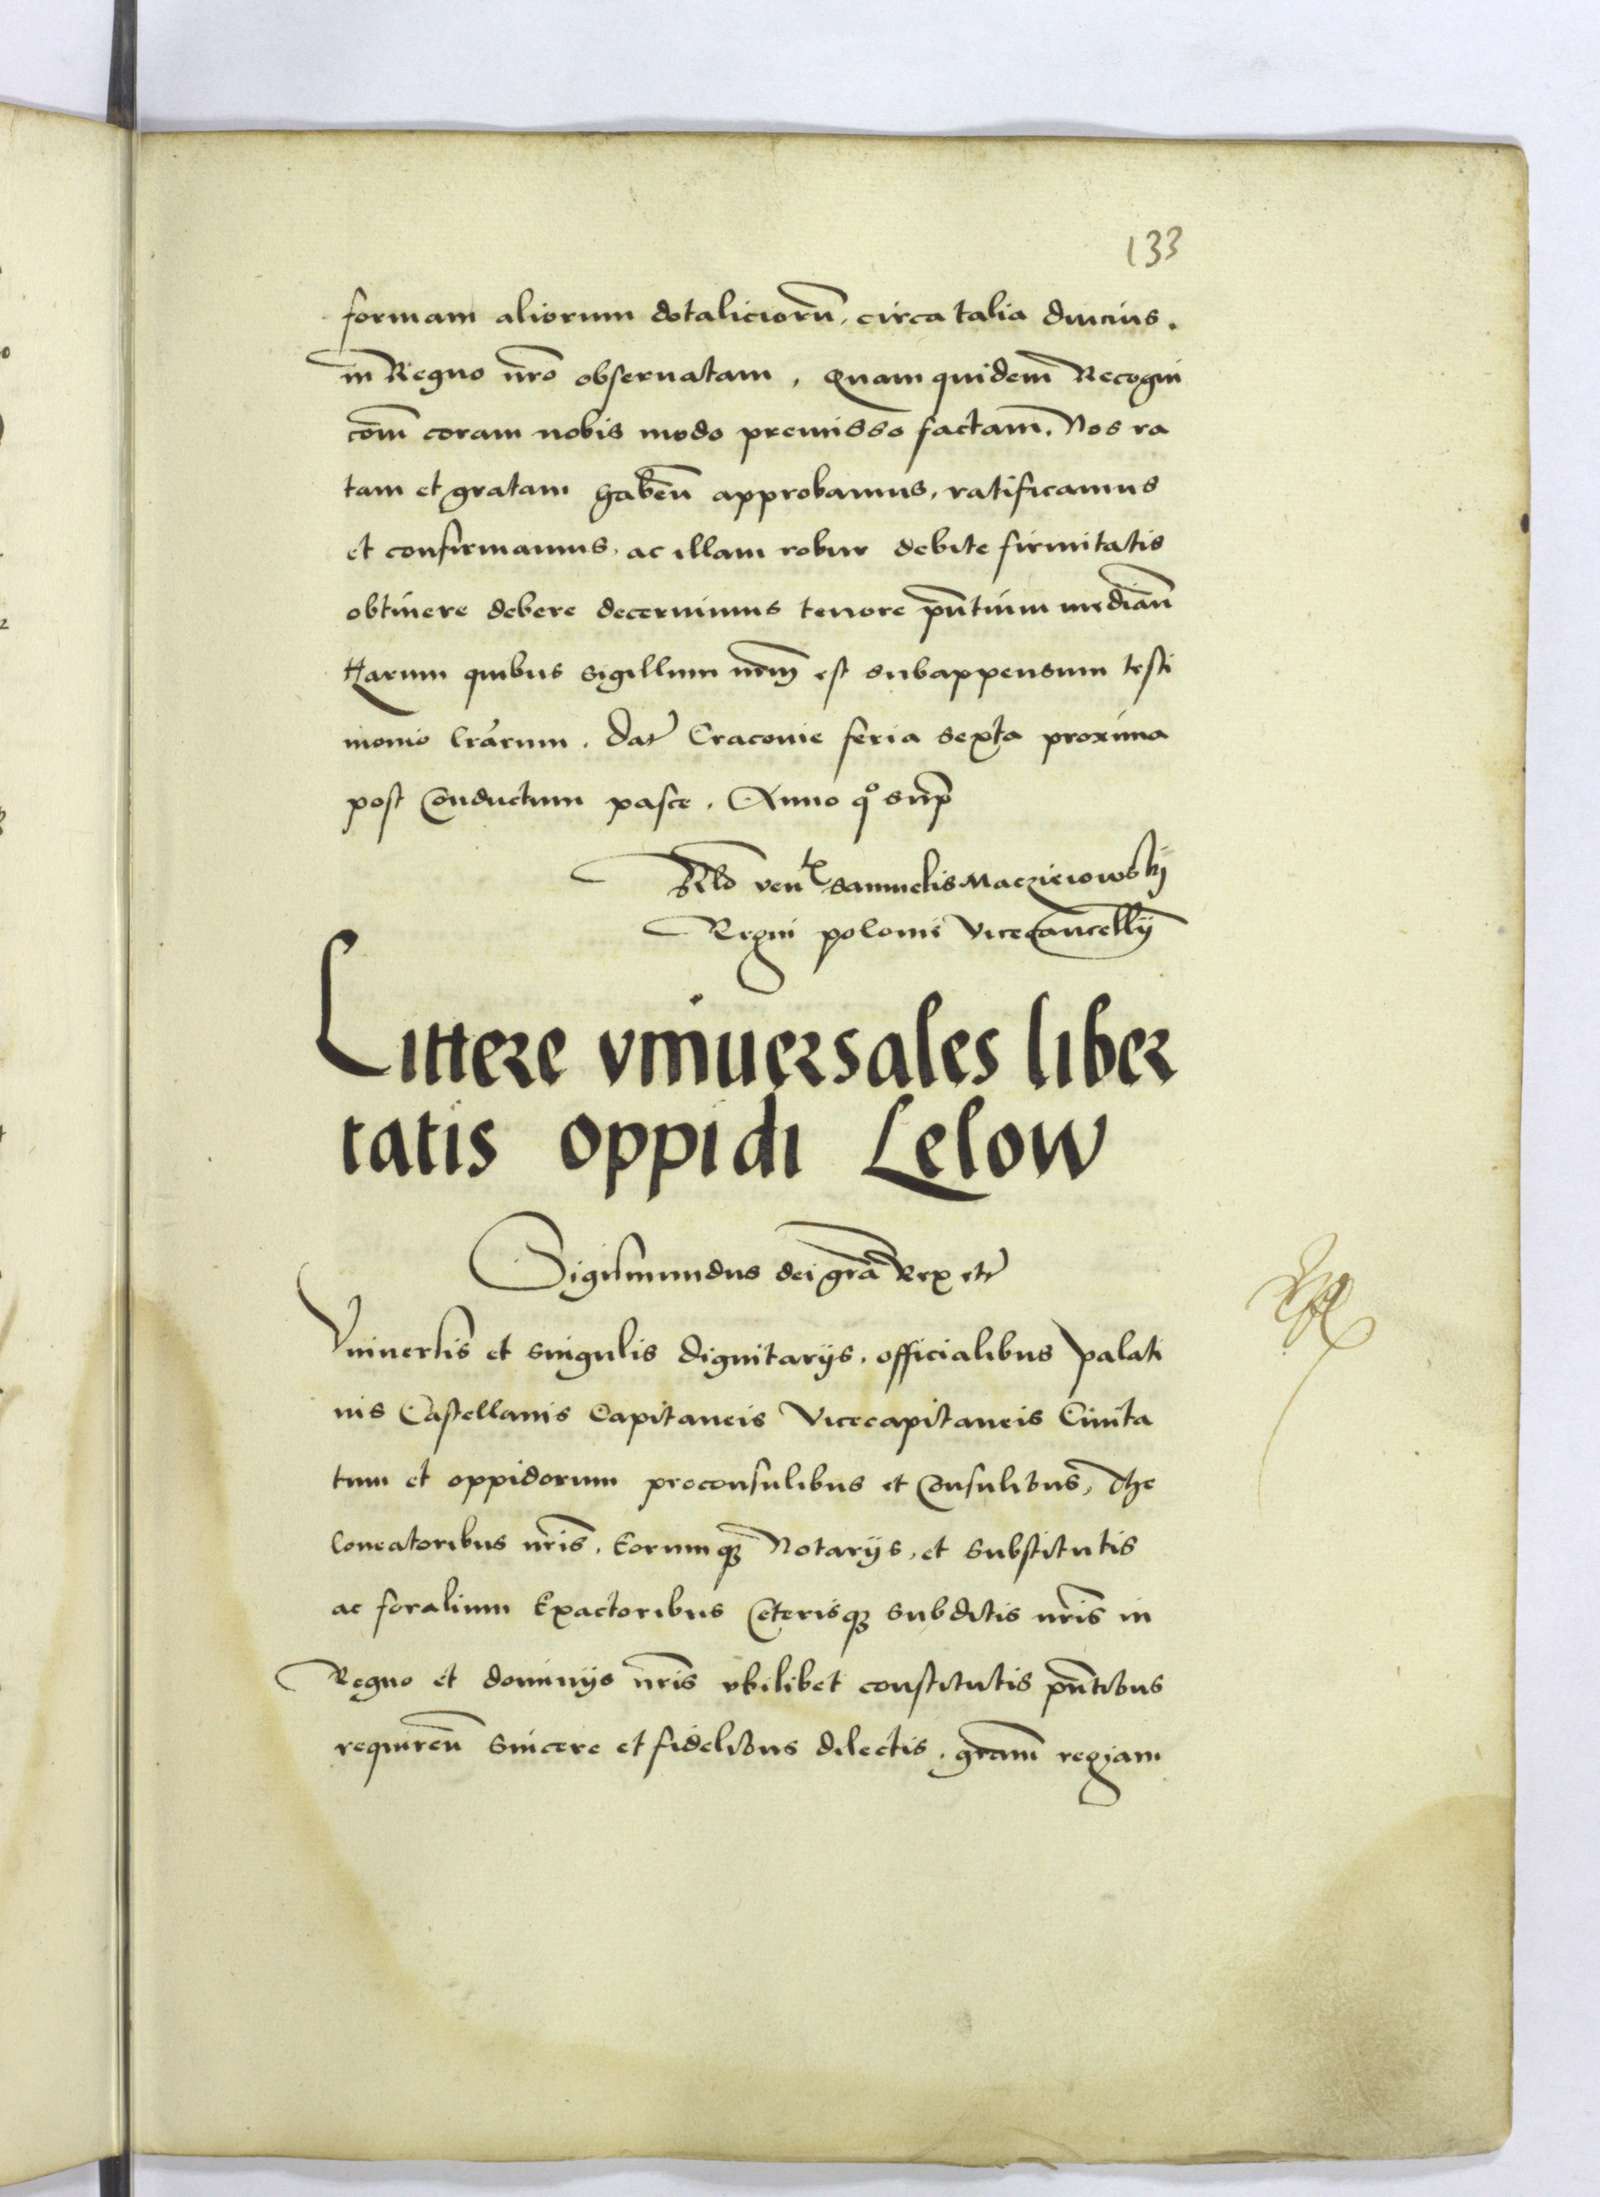 133
formam aliorum dotaliciorũ, circa talia diucius.
in Regno nr̃o obseruatam, Quam quidem Recogni
com̃ coram nobis modo premisso factam̃. Nos ra
tam et gratam haben̄ approbamus, ratificamus
et confirmamus, ac illam robur debite firmitatis
obtinere debere decernimus tenore pn̄tium median̄
Harum quibus sigillum nr̄m est subappensum testi
monio lr̄arum. Dat̃ Cracouie feria sexta proxima
post Conductum pasce. Anno qͦ sup̄
Rlo ven Samuelis Maczieiowskij
Regni polonie Vicecancellij
Littere vniuersales liber
tatis oppidi Lelow
Sigismundus dei gr̄a Rex etc̃
Vniuersis et singulis dignitarijs, officialibus palati
nis Castellanis Capitaneis Vicecapitaneis Ciuita
tum et oppidorum proconsulibus et Consulibus, The
loneatoribus nr̄is, Eorumqꝫ Notarijs, et substitutis
ac foralium Exactoribus Ceterisqꝫ subditis nr̄is in
Regno et dominijs nr̄is vbilibet constitutis pn̄tibus
requiren̄ sincere et fidelibus dilectis, gram̄ regiam